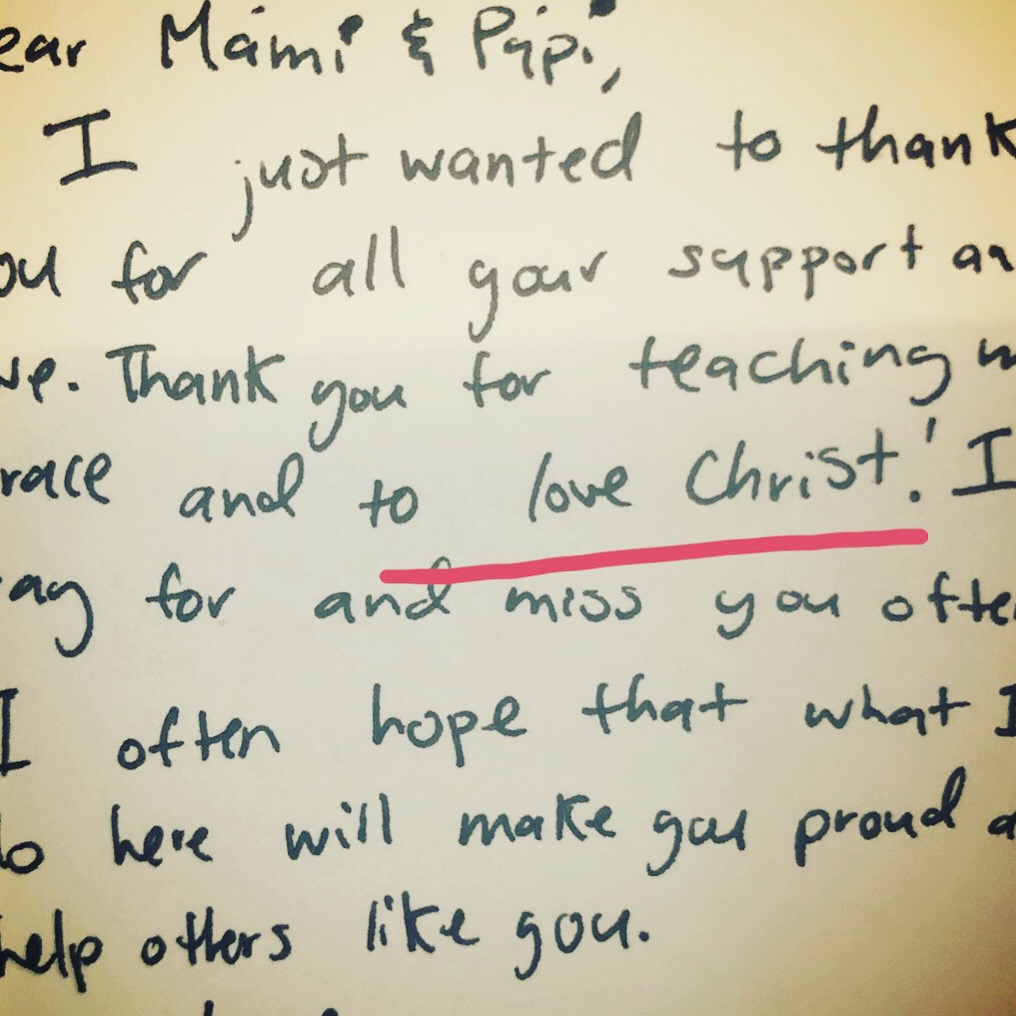 ear Mami & Papi,
I just wanted to thank
ou for all your support an
ve. Thank you for teaching m
race and to love Christ! I
ray for and miss you ofte
I often hope that what I
do here will make you proud a
help others like you.